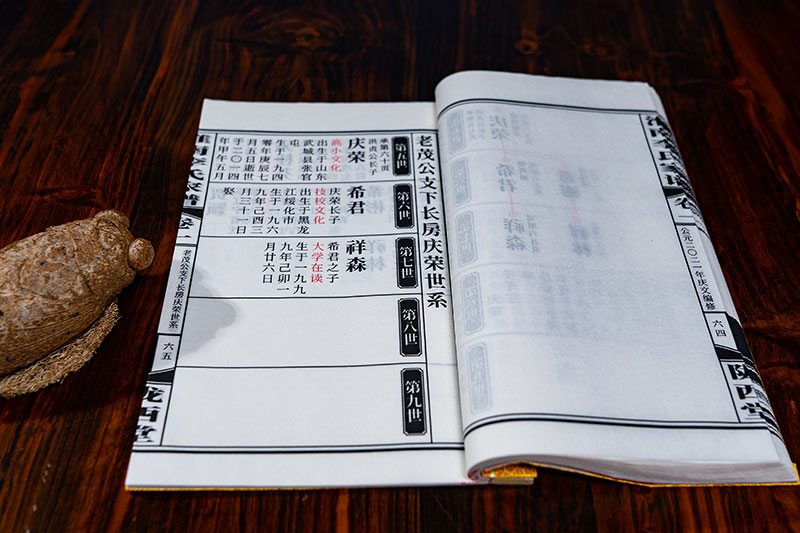 卷一
公元二〇二一年庆文编修
六四
老茂公支下长房庆荣世系
第五世
承第六十页
洪贞公长子
庆荣
高小文化
出生于山东
武城县张官
生于一九四
零年庚辰七
月五日逝世
于二〇一四
年甲午五月
第六世
希君
庆荣长子
技校文化
出生于黑龙
江绥化市
生于一九六
九年己酉三
月三十一日
娶
第七世
祥森
希君之子
大学在读
生于一九九
九年己卯一
月廿六日
第八世
第九世
李氏家谱
卷一
老茂公支下长房庆荣世系
六五
陇西堂